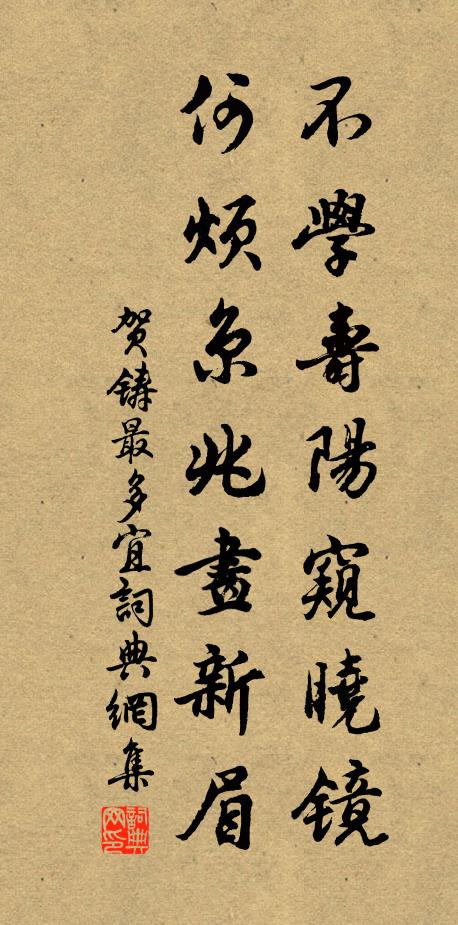 不學壽陽窺曉镜
何煩京兆畫新眉
贺鑄最多宜詞典網集
詞典网印